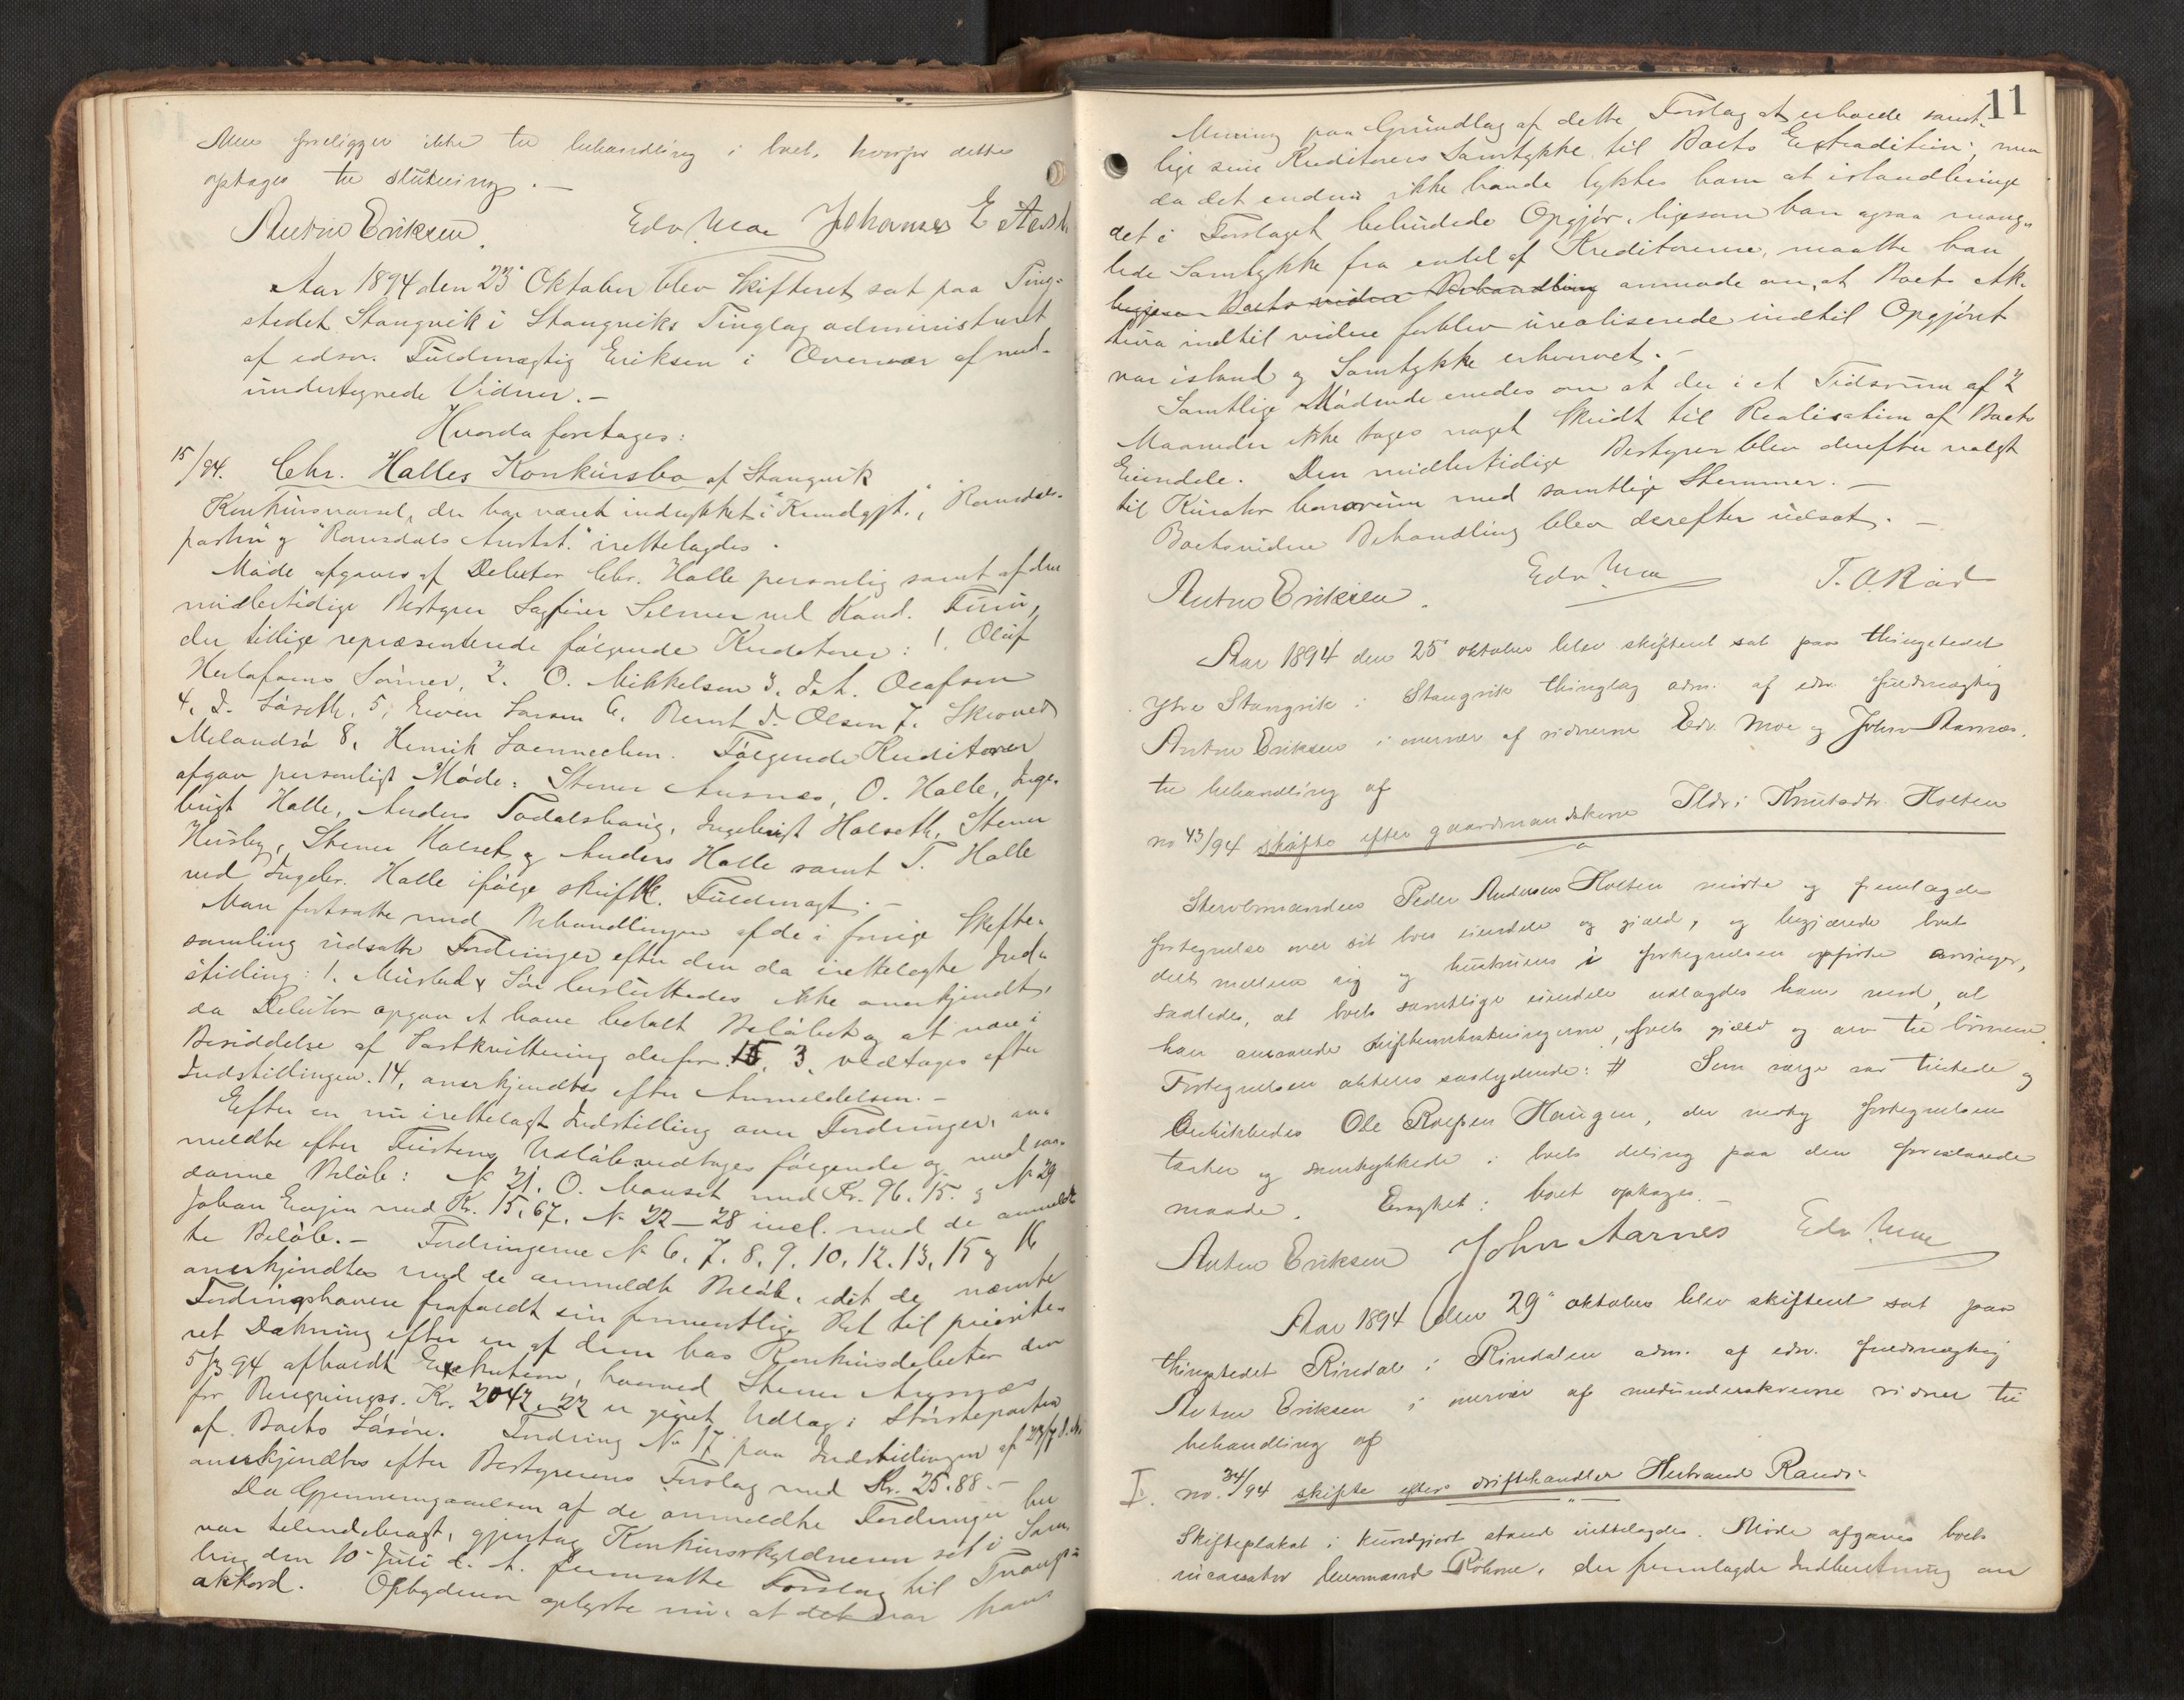 Mere foreligger ikke til behandling i boet, hvorfor dette
optages til slutning. —
Anton Eriksen. Edv Moe Johannes E
Aar 1894 den 23' Oktober blev Skifteret sat paa Ting-
stedet Stangvik i Stangviks Tinglag administreret
af edsv. Fuldmægtig Eriksen i Overvær af ned-
undertegnede Vidner. —
Hvorda foretages:
15/94. Chr. Halles Konkursbo af Stangvik
Konkursvarsel, der har været indrykket i "Kundgjt.", "Romsdals-
posten" og "Romsdals Amtst." irettelagdes.
Møde afgaves af Debitor Chr. Halle personlig samt af den
midlertidige Bestyrer Sagfører Selmer ved Kand. Furu,
der tillige repræsenterede følgende Kreditorer: 1. Oluf
Herlofsens Sønner, 2. O. Mikkelsen 3. Joh. Olafsen
4. J. Løseth, 5, Even Larsen 6. Bernt J. Olsen 7.
Melandsø 8, Henrik Loennechen. Følgende Kreditorer
afgav personligt Møde: Stener Aasnes, O. Halle, Inge-
brigt Halle, Anders Todalshaug, Ingebrigt Halseth, Stener
Husby, Stener Halset og Anders Halle samt T. Halle
ved Ingebr. Halle ifølge skriftl. Fuldmagt. —
Man fortsatte med Behandlingen af de i forrige Skifte-
samling udsatte Fordringer efter den da irettelagte Ind-
stilling: 1. Mustad & Søn besluttedes ikke anerkjendt,
da Debitor opgav at have betalt Beløbet og at være i
Besiddelse af Postkvittering derfor. 3, vedtages efter
Indstillingen. 14, anerkjendtes efter Anmeldelsen. —
Efter en nu irettelagt Indstilling over Fordringer, an-
meldte efter Fristens Udløb vedtages følgende og med saa-
danne Beløb: N 21, O. Mauset med Kr. 96. 15. og N 29
Johan Engin med Kr. 15,67. N 22 — 28 incl. med de anmeld-
te Beløb. — Fordringerne N 6, 7, 8, 9, 10, 12, 13, 15 og 16
anerkjendtes med de anmeldte Beløb, idet de nævnte
Fordringshavere frafaldt sin formentlige Ret til priorite-
ret Dækning efter en af dem hos Konkursdebitor den
5/3 94 afholdt Exekution, hvorved Stener Aasnes
for Regningss. Kr. 2042.22 er gjort Udlæg i Størsteparten
af Boets Løsøre. Fordring N 17 paa Indstillingen af 23/7 d.A.
anerkjendtes efter Bestyrerens Forslag med Kr. 25.88. —
Da Gjennemgaaelsen af de anmeldte Fordringer her
var tilendebragt, gjentog Konkursskyldneren sit i Sam-
ling den 10' Juli d. A. fremsatte Forslag til Tvangs-
akkord. Opbyderen oplyste nu, at det var hans
11
Mening paa Grundlag af dette Forslag at erholde samt-
lige sine Kreditorers Samtykke til Boets Extradition; men
da det endnu ikke havde lyktes ham at istandbringe
det i Forslaget bebudede Opgjør, ligesom han ogsaa mang-
lede Samtykke fra endel af Kreditorerne, maatte han
begjære Boets videre Behandling anmode om, at Boets Ak-
tiva indtil videre forblev urealiserede indtil Opgjøret
var istand og Samtykke erhvervet. —
Samtlige Mødende enedes om at der i et Tidsrum af 2
Maaneder ikke tages noget Skridt til Realisation af Boets
Eiendele. Den midlertidige Bestyrer blev derefter valgt
til Kurator bonorum med samtlige Stemmer. —
Boets videre Behandling blev derefter udsat. —
Anton Eriksen. Edv Moe T. O. Rød
Aar 1894 den 25' oktober blev skifteret sat paa thingstedet
ytre Stangvik i Stangvik thinglag adm. af edsv. fuldmægtig
Anton Eriksen i overvær af vidnerne Edv. Moe og John Aarnes.
til behandling af
no 43/94 skifte efter gaardmandskone Ildri Knutsdtr. Holten
Stervbmanden Peder Andersen Holten mødte og fremlagde
fortegnelse over sit boes eiendele og gjæld, og begjærede boet
delt mellem sig og hustruens i fortegnelsen opførte arvinger,
saaledes, at boets samtlige eiendele udlagdes ham mod, at
han ansvarede skifteomkostningerne, boets gjæld og arv til børnene.
Fortegnelsen akteres saalydende: # Som værge var tilstede og
beskikkedes Ole Hansen Haugen, der vedtog fortegnelsens
takster og samtykkede i boets deling paa den foreslaaede
maade. Eragtet: boet optages. —
Anton Eriksen John Aarnes Edv Moe
Aar 1894 den 29' oktober blev skifteret sat paa
thingstedet Rindal i Rindalen adm. af edsv. fuldmægtig
Anton Eriksen i overvær af medunderskrevne vidner til
behandling af
I. no. 34/94 skifte efter driftehandler Halvard Rands:
Skifteplakat i kundgjort stand irettelagdes. Møde afgaves boets
incassator lensmand Bøhme, der fremlagde Indberetning om